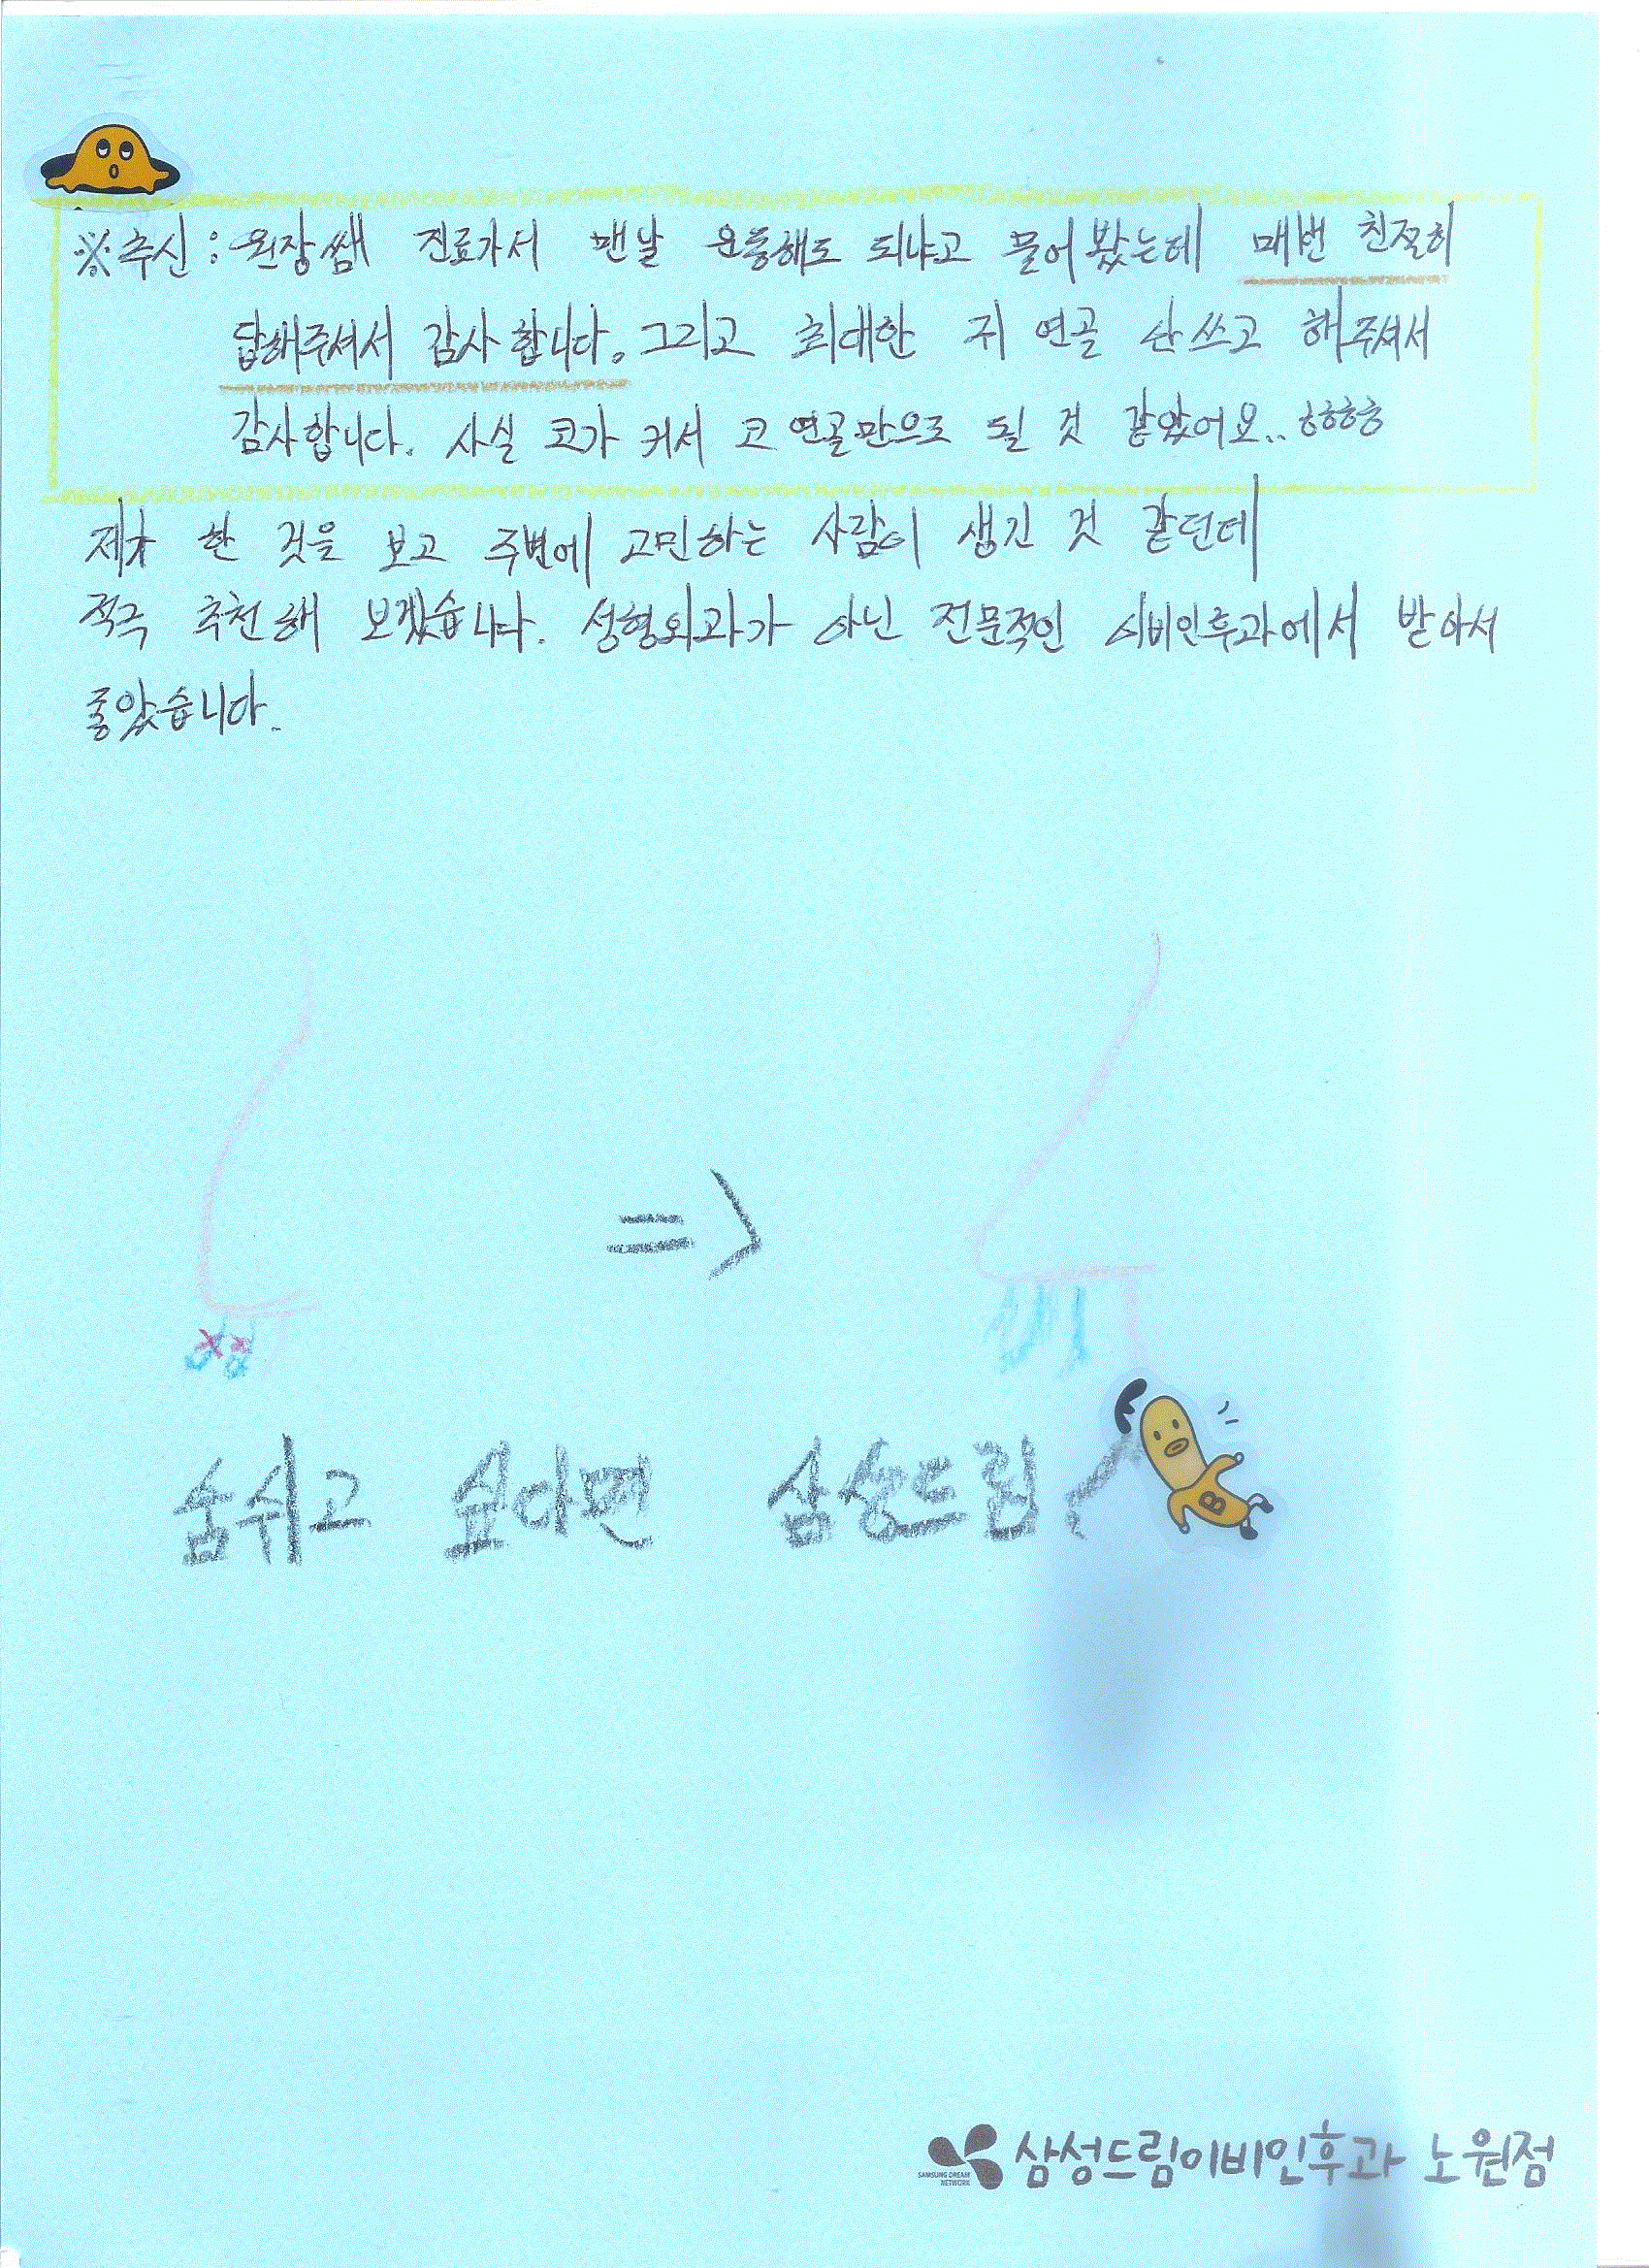 ※추신: 원장쌤 진료가서 맨날 운동해도 되냐고 물어봤는데 매번 친절히
답해주셔서 감사합니다. 그리고 최대한 귀 연골 안쓰고 해주셔서
감사합니다. 사실 코가 커서 코 연골만으로 될 것 같았어요.. ㅎㅎㅎㅎ
제가 한 것을 보고 주변에 고민하는 사람이 생긴 것 같던데
적극 추천해 보겠습니다. 성형외과가 아닌 전문적인 이비인후과에서 받아서
좋았습니다.
=>
숨쉬고 싶다면 삼성드림
B
SAMSUNG DREAM
NETWORK
삼성드림이비인후과 노원점